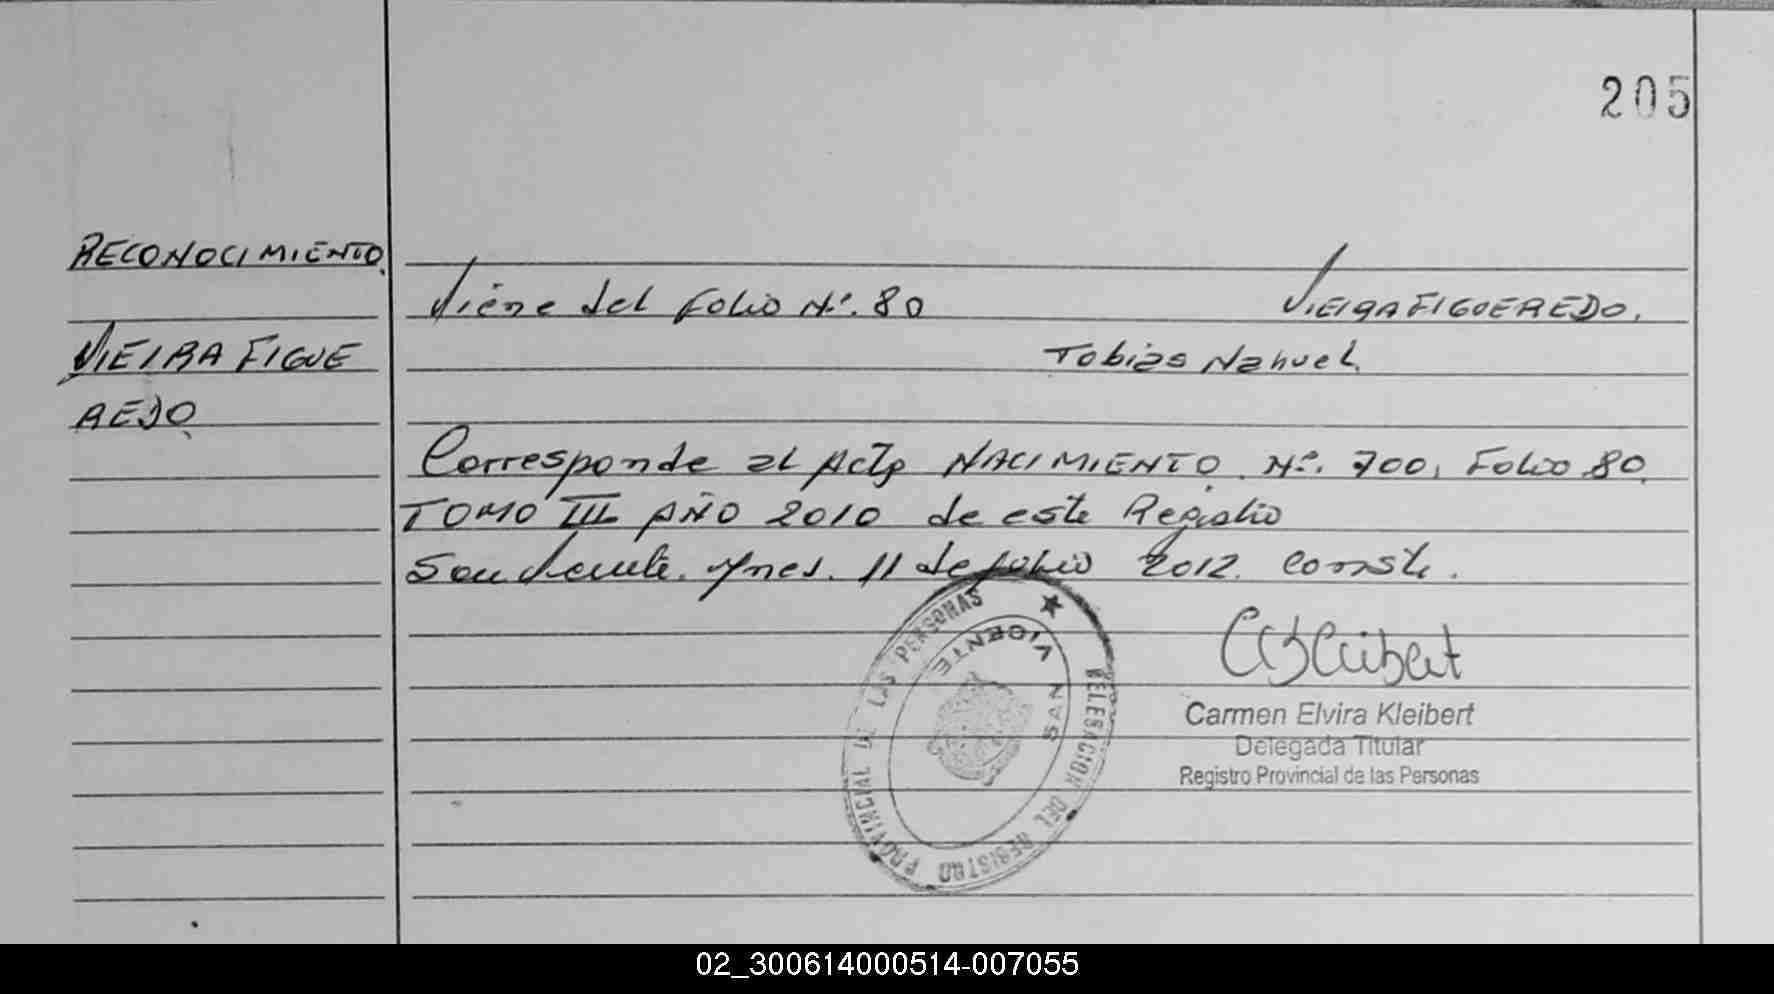 205
RECONOCIMIENTO.
VIEIRA FIGUE
REDO.
Viene del Folio Nº. 80 VIEIRA FIGUEREDO.
Tobias Nahuel.
Corresponde al Acta NACIMIENTO. Nº. 700, Folio 80.
TOMO III AÑO 2010 de este Registro
San Vicente. Mnes. 11 de Julio 2012. Conste.
DELEGACION DEL REGISTRO PROVINCIAL DE LAS PERSONAS
SAN VICENTE
CEKleibert
Carmen Elvira Kleibert
Delegada Titular
Registro Provincial de las Personas
02_300614000514-007055